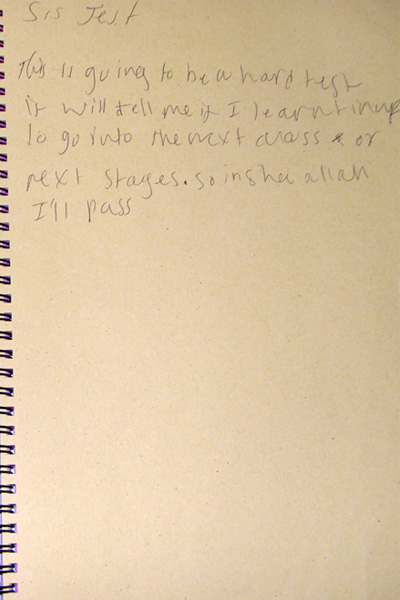 Sis Test
This is guing to be a hard test
it will tell me if I learnt inup
to go into the next class & or
next stages. so inshea allah
I'll pass